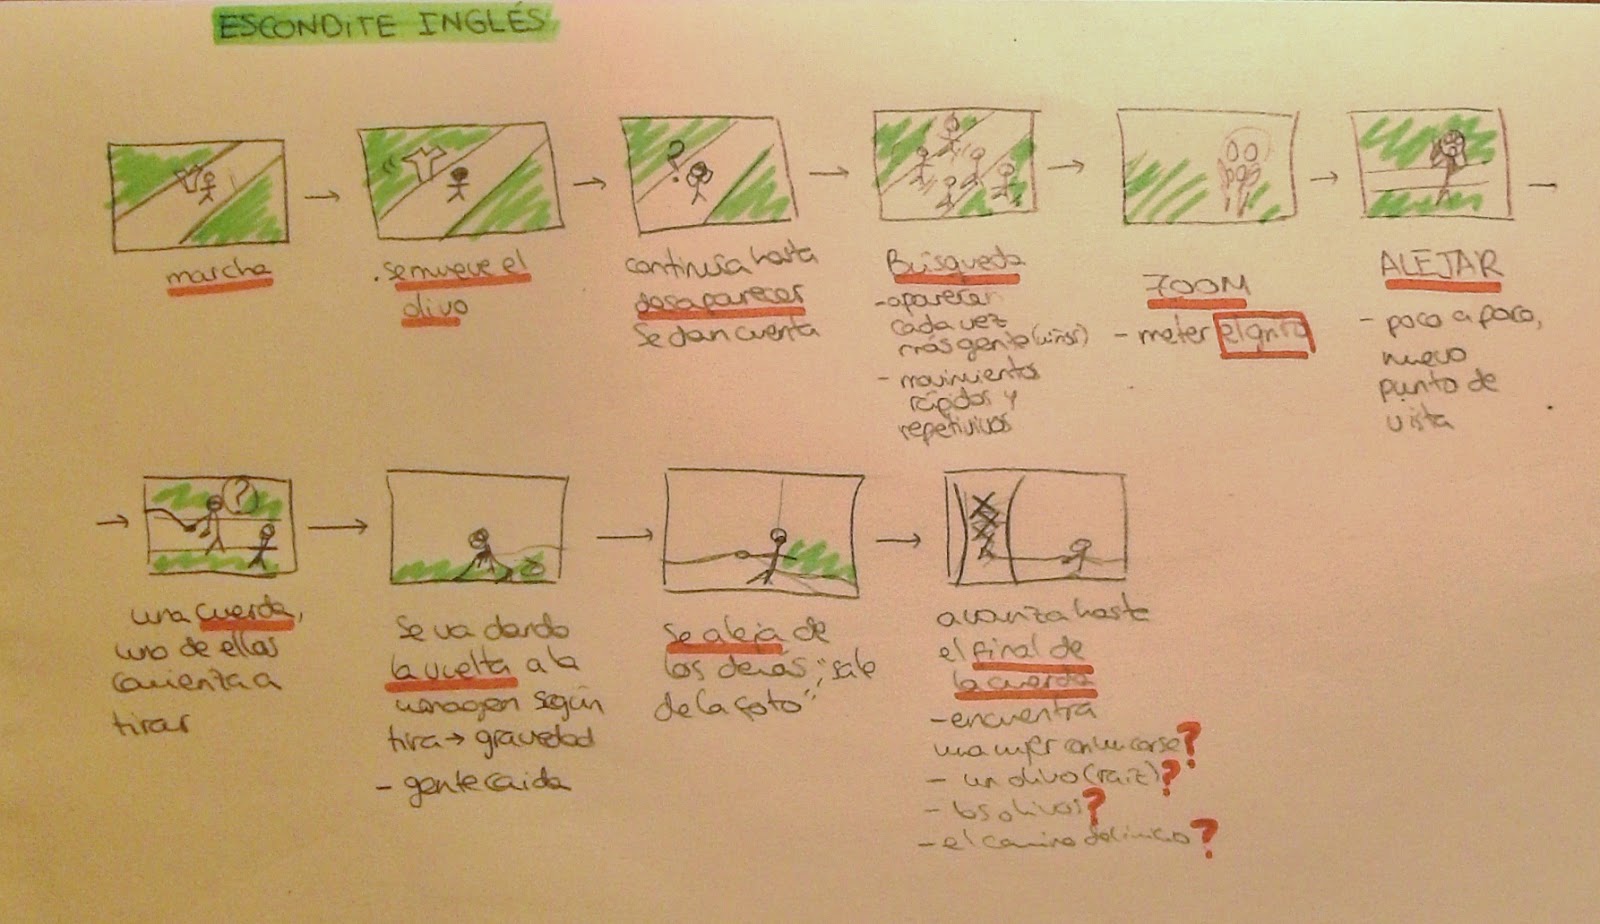 ESCONDITE INGLÉS
marcha
. se mueve el
olivo
continúa hasta
desaparecer
se dan cuenta
Búsqueda
- aparecen
cada vez
más gente (niños)
- movimientos
rápidos y
repetitivos
ZOOM
- meter el grito
ALEJAR
- poco a poco,
nuevo
punto de
vista
una cuerda,
uno de ellas
comienza a
tirar
Se va dando
la vuelta a la
imagen según
tira → gravedad
- gente caida
Se aleja de
los demás, "sale
de la foto"
avanza hasta
el final de
la cuerda
- encuentra
una mujer con un corse?
- un olivo (raiz)?
- los olivos?
- el camino del inicio?
?
?